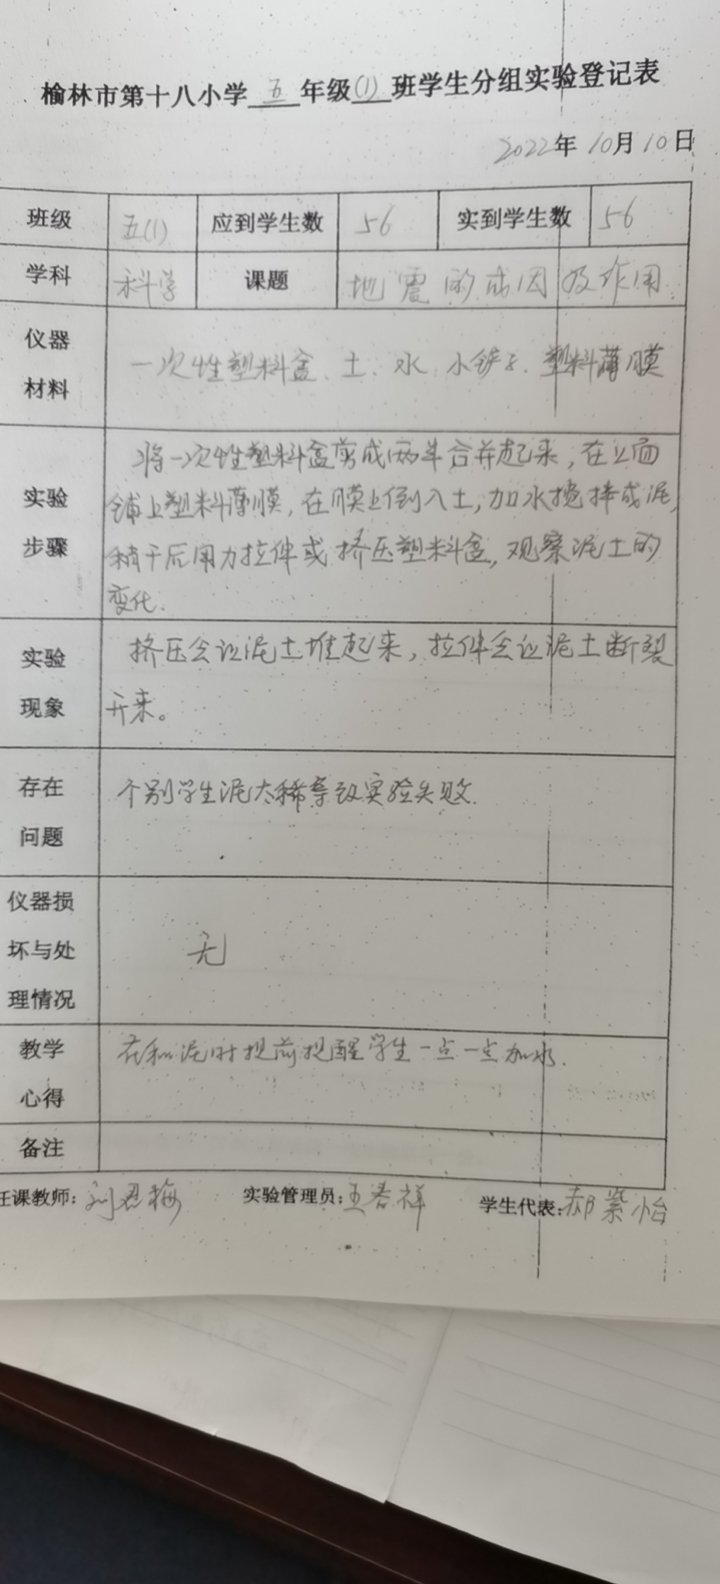 榆林市第十八小学五年级(1)班学生分组实验登记表
2022年10月10日
班级 五(1) 应到学生数 56 实到学生数 56
学科 科学 课题 地震的成因及作用
仪器
材料
一次性塑料盒、土、水、小铲子、塑料薄膜
实验
步骤
将一次性塑料盒剪成两半合并起来,在上面
铺上塑料薄膜,在膜上倒入土,加水搅拌成泥,
稍干后用力拉伸或挤压塑料盒,观察泥土的
变化.
实验
现象
挤压会让泥土堆起来,拉伸会让泥土断裂
开来。
存在
问题
个别学生泥太稀导致实验失败.
仪器损
坏与处
理情况
无
教学
心得
在和泥时提前提醒学生一点一点加水.
备注
任课教师:刘君梅 实验管理员:王春祥 学生代表:郝紫怡